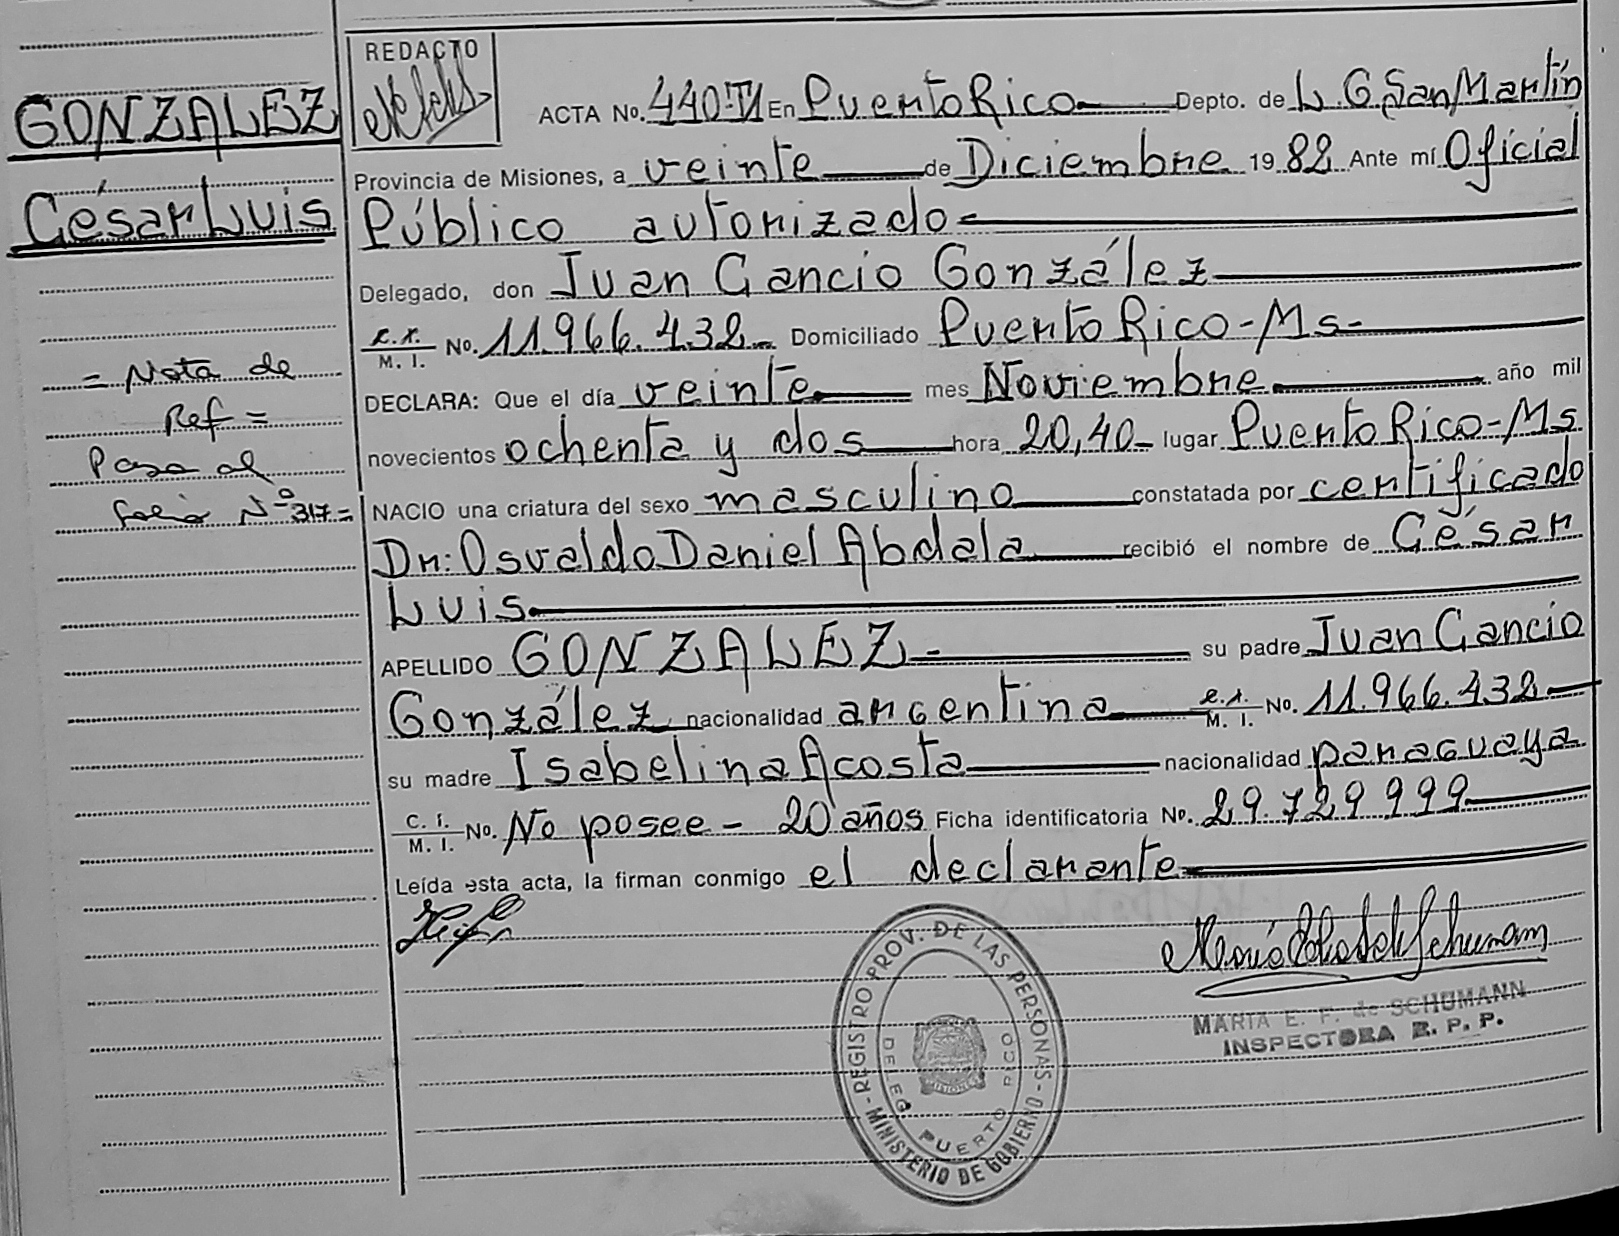 GONZALEZ
César Luis
= Nota de
Ref =
Pasa al
folio Nº 317 =
REDACTO
ACTA No. 440-TI En Puerto Rico Depto. de L G San Martín
Provincia de Misiones, a veinte de Diciembre 19 82 Ante mí Oficial
Público autorizado
Delegado, don Juan Cancio González
M. I. No. 11.966.432 Domiciliado Puerto Rico - Ms-
DECLARA: Que el día veinte mes Noviembre año mil
novecientos ochenta y dos hora 20,40 lugar Puerto Rico - Ms
NACIO una criatura del sexo masculino constatada por certificado
Dr: Osvaldo Daniel Abdala recibió el nombre de César
Luis
APELLIDO GONZALEZ - su padre Juan Cancio
González nacionalidad argentina M. I. No. 11.966.432
su madre Isabelina Acosta nacionalidad paraguaya
C. I. M. I. No. No posee - 20 años Ficha identificatoria No. 29.729.999
Leída esta acta, la firman conmigo el declarante
MARIA E. F. de SCHUMANN
INSPECTORA R. P. P.
REGISTRO PROV. DE LAS PERSONAS - MINISTERIO DE GOBIERNO -
DELEG. PUERTO RICO